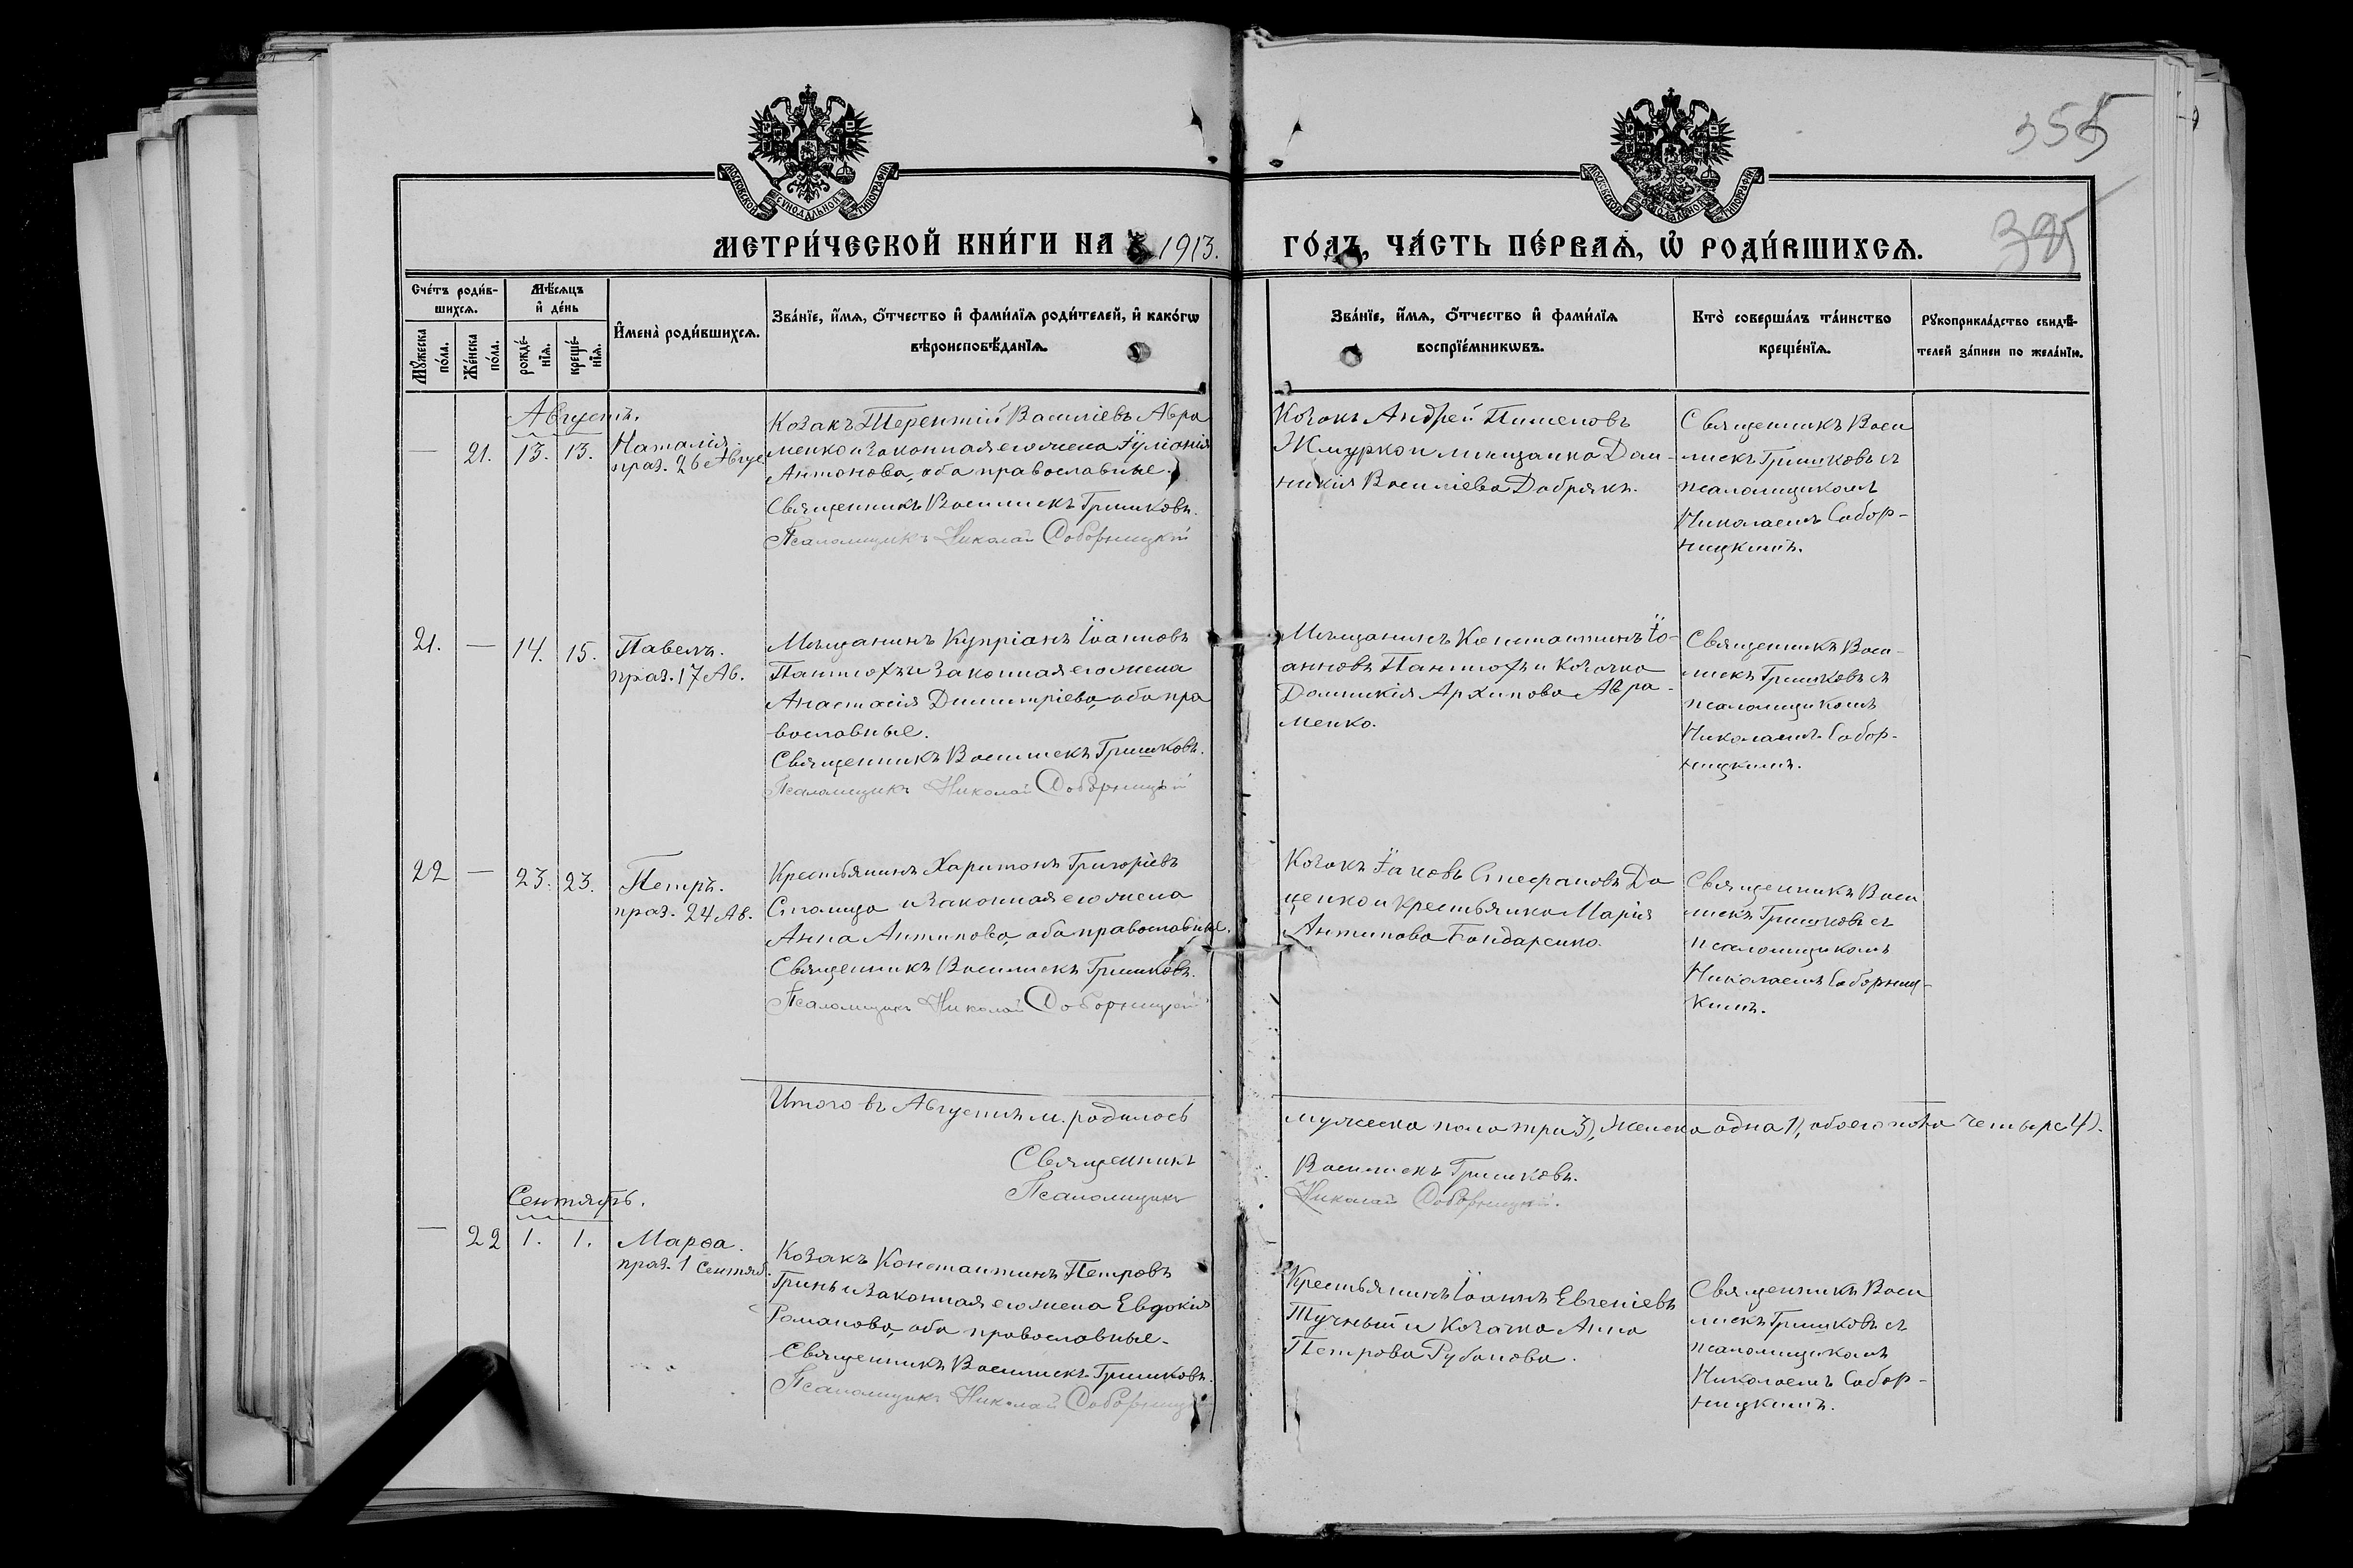 355
385
МОСКОВСКОЙ СУНОДАЛЬНОЙ ТИПОГРАФІИ
МОСКОВСКОЙ СУНОДАЛЬНОЙ ТИПОГРАФІИ
МЕТРИ́ЧЕСКОЙ КНИ́ГИ НА 1913.
ГО́ДЪ, ЧА́СТЬ ПЕ́РВАѦ, Ѡ РОДИ́ВШИХСѦ.
Сче́тъ роди́в-
шихсѧ.
Мꙋжеска по́ла.
Же́нска по́ла.
Мѣ́сѧцъ
и де́нь
рожде́-нїѧ.
креще́-нїѧ.
Имена̀ роди́вшихсѧ.
Зва́нїе, и́мѧ, о́тчество и фами́лїѧ роди́телей, и како́гѡ
вѣроисповѣ́данїѧ.
Зва́нїе, и́мѧ, о́тчество и фами́лїѧ
воспрїе́мникѡвъ.
Кто̀ соверша́лъ та́инство
креще́нїѧ.
Рꙋкоприкла́дство свидѣ́-
телей за́писи по жела́нїю.
Августъ.
— 21. 13. 13. Наталія.
праз. 26 Авгус.
Козакъ Терентій Василіевъ Авра
менко и законная его жена Іуліанія
Антонова, оба православные.
Священникъ Василискъ Гришковъ.
Псаломщикъ Николай Соборницкій
Козакъ Андрей Пименовъ
Жмурко и мѣщанка Дом-
никія Василіева Добрякъ.
Священникъ Васи
лискъ Гришковъ съ
псаломщикомъ
Николаемъ Собор-
ницкимъ.
21. — 14. 15. Павелъ.
праз. 17 Ав.
Мѣщанинъ Купріанъ Іоанновъ
Пантюхъ и законная его жена
Анастасія Димитріева, оба пра
вославные.
Священникъ Василискъ Гришковъ.
Псаломщикъ Николай Соборницкій
Мѣщанинъ Константинъ Іо-
анновъ Пантюхъ и козачка
Домникія Архипова Авра-
менко.
Священникъ Васи-
лискъ Гришковъ съ
псаломщикомъ
Николаемъ Собор-
ницкимъ.
22 — 23. 23. Петръ.
праз. 24 Ав.
Крестьянинъ Харитонъ Григоріевъ
Столица и законная его жена
Анна Антипова, оба православные.
Священникъ Василискъ Гришковъ.
Псаломщикъ Николай Соборницкій
Козакъ Іаковъ Стефановъ До
ценко и крестьянка Марія
Антипова Бондаренко.
Священникъ Васи
лискъ Гришковъ съ
псаломщикомъ
Николаемъ Соборниц-
кимъ.
Итого въ Августѣ м. родилось
мужеска пола три 3), женска одна 1), обоего пола четыре 4).
Священникъ Василискъ Гришковъ.
Псаломщикъ Николай Соборницкій.
Сентябрь.
— 22 1. 1. Марѳа.
праз. 1 Сентяб.
Козакъ Константинъ Петровъ
Гринь и законная его жена Евдокія
Романова, оба православные.
Священникъ Василискъ Гришковъ.
Псаломщикъ Николай Соборницкій
Крестьянинъ Іоаннъ Евгеніевъ
Тучный и козачка Анна
Петрова Рубанова.
Священникъ Васи
лискъ Гришковъ съ
псаломщикомъ
Николаемъ Собор-
ницкимъ.